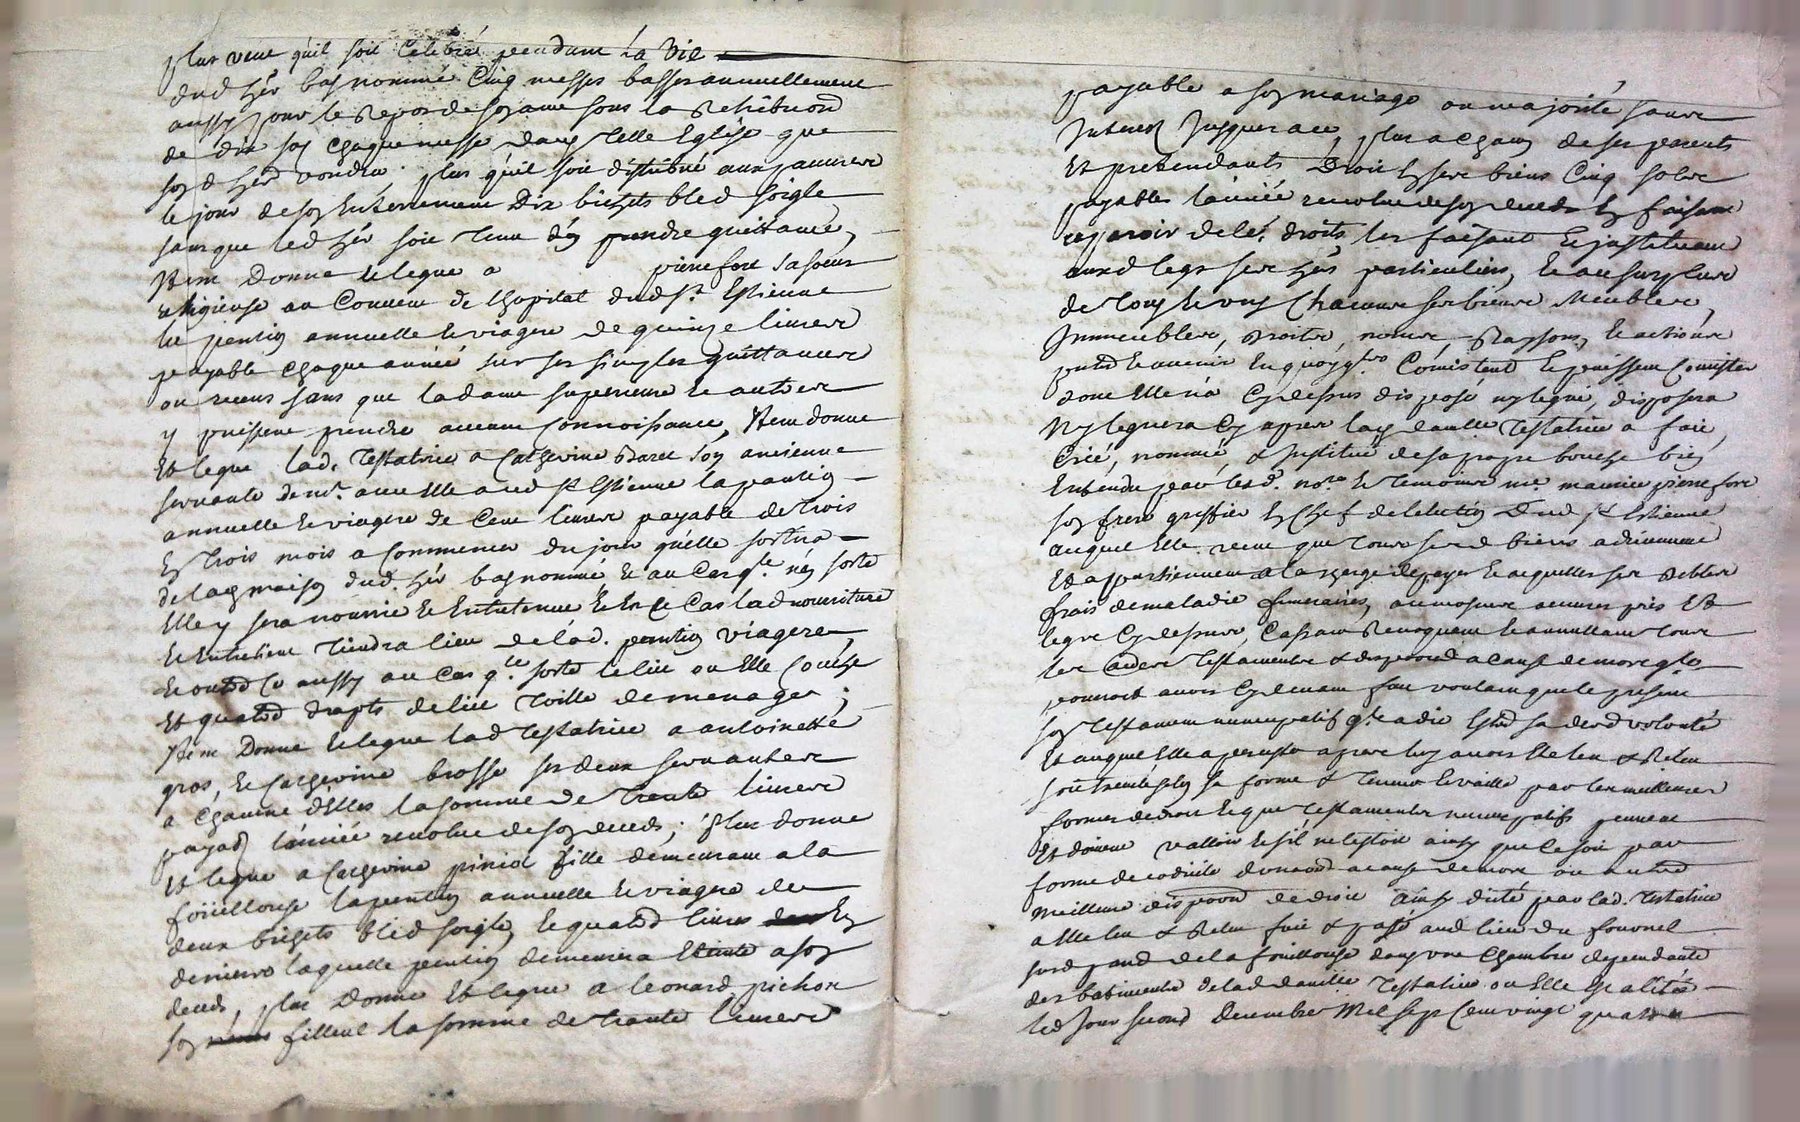 plus veut quil soit Celebré pendant la vie
dud her bas nommé Cinq messes basses annuellement
aussy pour le Repos de son ame sous la Retribuon
de dix sos chaque messe dans telle Eglise que
sond her voudra. plus quil soit distribué aux pauvres
le jour de son Enterrement dix bichets bled soigle
sans que led her soit tenu den prendre quittance,
Item donne et legue a pierrefort sa soeur
religieuse au Couvent de lhopital dud st Estienne
la pention annuelle et viagere de quinze livres
payable chaque année sur ses simples quittances
ou receus sans que la dame superieure et autres
y puissent prendre aucune connoissance, Item donne
Et legue lad. testatrice a Catherine son ancienne
servante aud st Estienne la pention
annuelle et viagere de Cent livres payable de trois
En trois mois a Commencer du jour quelle sortira
de la maison dud. her bas nommé et au Cas q.le nen sorte
Elle y sera nourrie et Entretenue et En ce Cas lad nourriture
et Entretient tiendra lieu de lad. pention viagere,
et outre Ce aussy au Cas q.lle sorte le lit ou Elle Couche
Et quatre drapts de lit toille de menage;
Item Donne et legue lad testatrice a antoinette
gros, et Catherine brosse ses deux servantes
a chacune delles la somme de trente livres
payab lannée revolue de son deceds; plus donne
Et legue a Catherine piniol fille demeurant a la
foüillouse la pention annuelle et viagere de
deux bichets bled soigle, et quatre livres En
deniers laquelle pention demeurera Eteinte a son
deceds, plus Donne Et legue a leonard pichon
son filleul la somme de trente livres
payable a son mariage ou majorité sans
Interest jusques a ce, plus a chacun de ses parents
Et pretendants droit En ses biens Cinq solz
payables lannée revolue de son deceds En faisant
apparoir de leś droits les faisant et jnstituant
auxd legs ses hers particuliers, Et au surplus
de tous et uns chacuns ses biens Meubles,
Immeubles, droits, noms, Raysons, et actions
pnts et avenir En quoy q.ls Consistent et puissent Consister
dont Elle na Cy dessus disposé ny legué, disposera
Ny leguera Cy apres lad damlle testatrice a fait,
Créé, nommé & Institué de sa propre bouche bien
Entendu par lesd. no.re et temoins me. maurice pierrefort
son frere greffier En Chef de lelection dud st Estienne
auquel Elle veut que tous sesd biens adviennent
Et appartiennent a la charge de payer et acquitter ses debtes
frais de maladie funeraires, aumosnes œuvres pies Et
legs Cy dessus, Cassant Revoquant et annullant tous
les autres testaments & disposons a cause de mort q.le
pourroit avoir Cy devant fait voulant que le present
son testament nuncupatif q.le a dit Estre sa derre volonté
Et auquel Elle a persisté apres luy avoir Eté leu & Releu
sorte sa forme & teneur et vaille par les meilleures
formes de droit et que testaments nuncupatifs peuvent
Et doivent valloir et sil ne lestoit ainsy que ce soit par
forme de codicile donaon a cause de mort ou autre
meilleure dispoon de droit ainsy dicté par lad. testatrice
a Elle leu & Releu fait & passé aud lieu du fournel
surd pand de la foüillouse dans une chambre dependante
des batiments de lad damlle testatrice ou Elle Est alitée
led jour second decembre Mil sept Cent vingt quatre